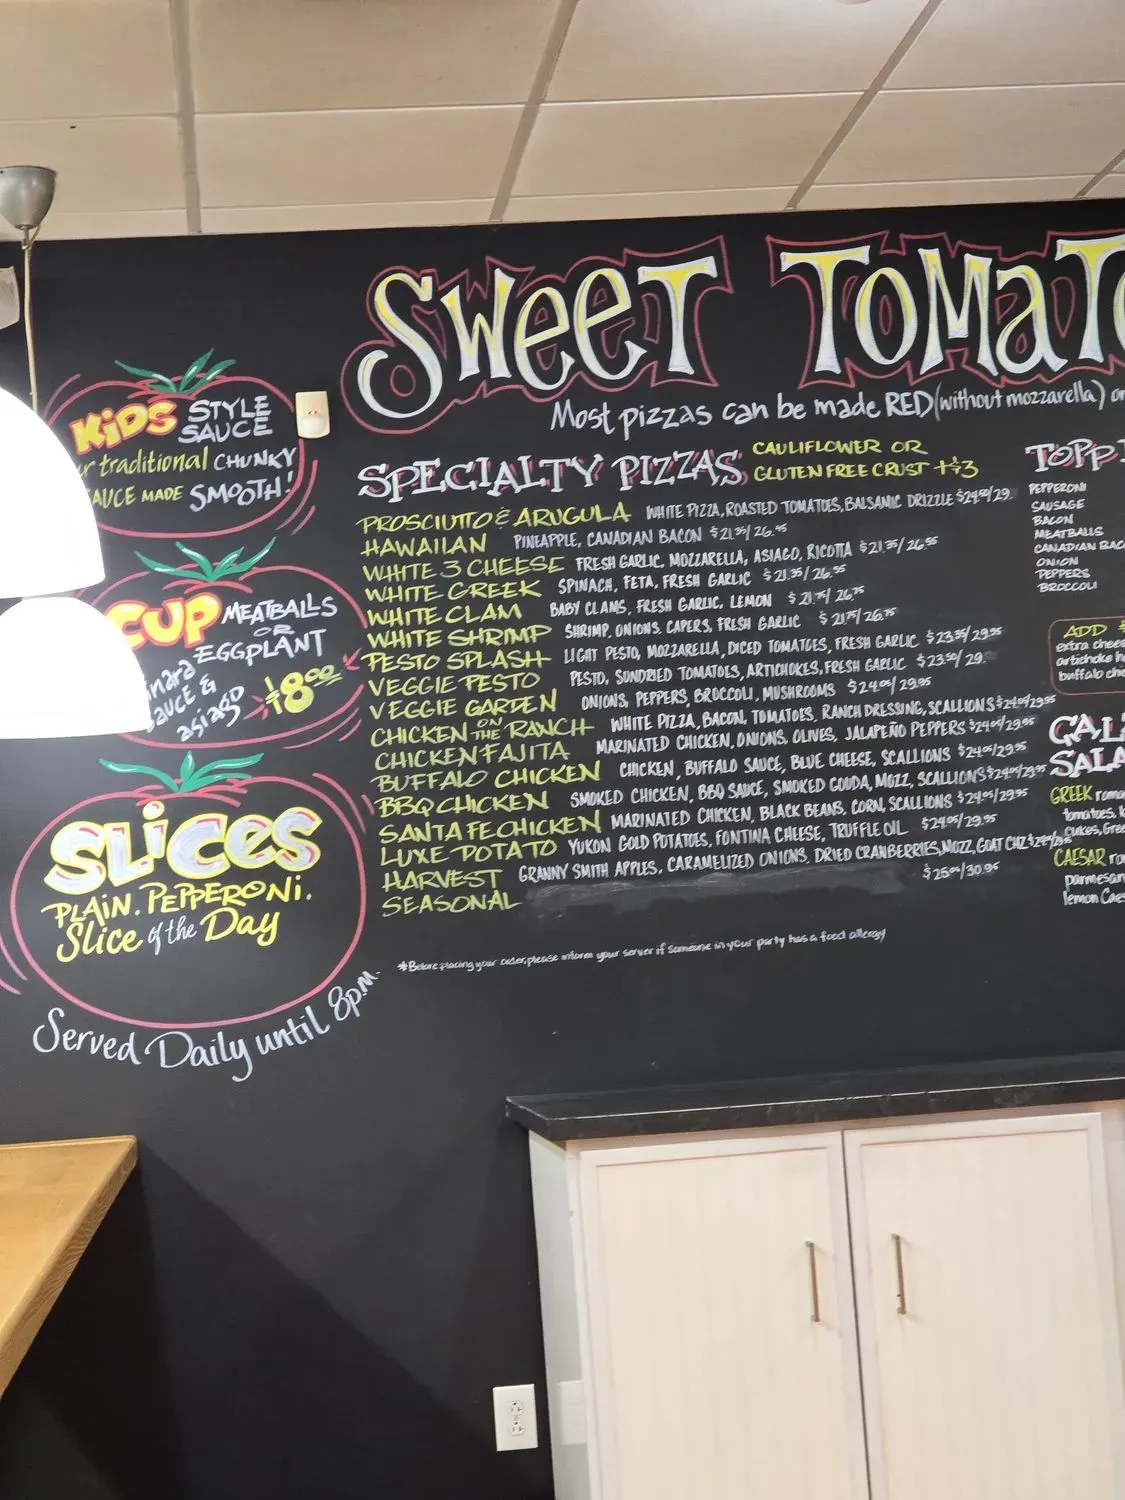 SWEET TOMAT
Most pizzas can be made RED (without mozzarella)
KIDS STYLE SAUCE
traditional CHUNKY
SAUCE MADE SMOOTH!
CUP MEATBALLS
OR
EGGPLANT
SAUCE &
asiago
$8.00
SLICES
PLAIN. PEPPERONI.
Slice of the Day
Served Daily until 8p.m.
SPECIALTY PIZZAS
CAULIFLOWER OR
GLUTEN FREE CRUST +$3
PROSCIUTTO & ARUGULA WHITE PIZZA, ROASTED TOMATOES, BALSAMIC DRIZZLE
HAWAIIAN PINEAPPLE, CANADIAN BACON $21.95/26.95
WHITE 3 CHEESE FRESH GARLIC, MOZZARELLA, ASIAGO, RICOTTA
WHITE GREEK SPINACH, FETA, FRESH GARLIC
WHITE CLAM BABY CLAMS, FRESH GARLIC, LEMON
WHITE SHRIMP SHRIMP, ONIONS, CAPERS, FRESH GARLIC
PESTO SPLASH LIGHT PESTO, MOZZARELLA, DICED TOMATOES, FRESH GARLIC
VEGGIE PESTO PESTO, SUNDRIED TOMATOES, ARTICHOKES, FRESH GARLIC
VEGGIE GARDEN ONIONS, PEPPERS, BROCCOLI, MUSHROOMS $24.95/29.95
CHICKEN ON THE RANCH WHITE PIZZA, BACON, TOMATOES, RANCH DRESSING, SCALLIONS $24.95/29.95
CHICKEN FAJITA MARINATED CHICKEN, ONIONS, OLIVES, JALAPEÑO PEPPERS $24.95/29.95
BUFFALO CHICKEN CHICKEN, BUFFALO SAUCE, BLUE CHEESE, SCALLIONS $24.95/29.95
BBQ CHICKEN SMOKED CHICKEN, BBQ SAUCE, SMOKED GOUDA, MOZZ, SCALLIONS $24.95/29.95
SANTA FE CHICKEN MARINATED CHICKEN, BLACK BEANS, CORN, SCALLIONS $24.95/29.95
LUXE POTATO YUKON GOLD POTATOES, FONTINA CHEESE, TRUFFLE OIL $24.95/29.95
HARVEST GRANNY SMITH APPLES, CARAMELIZED ONIONS, DRIED CRANBERRIES, MOZZ, GOAT CHZ
SEASONAL $25.95/30.95
*Before placing your order, please inform your server if someone in your party has a food allergy
TOPP
PEPPERONI
SAUSAGE
BACON
MEATBALLS
CANADIAN BAC
ONION
PEPPERS
BROCCOLI
ADD $
extra chees
artichoke h
buffalo chi
SALA
GREEK roma
tomatoes,
cukes, Gree
CAESAR ro
parmesan
lemon Caes